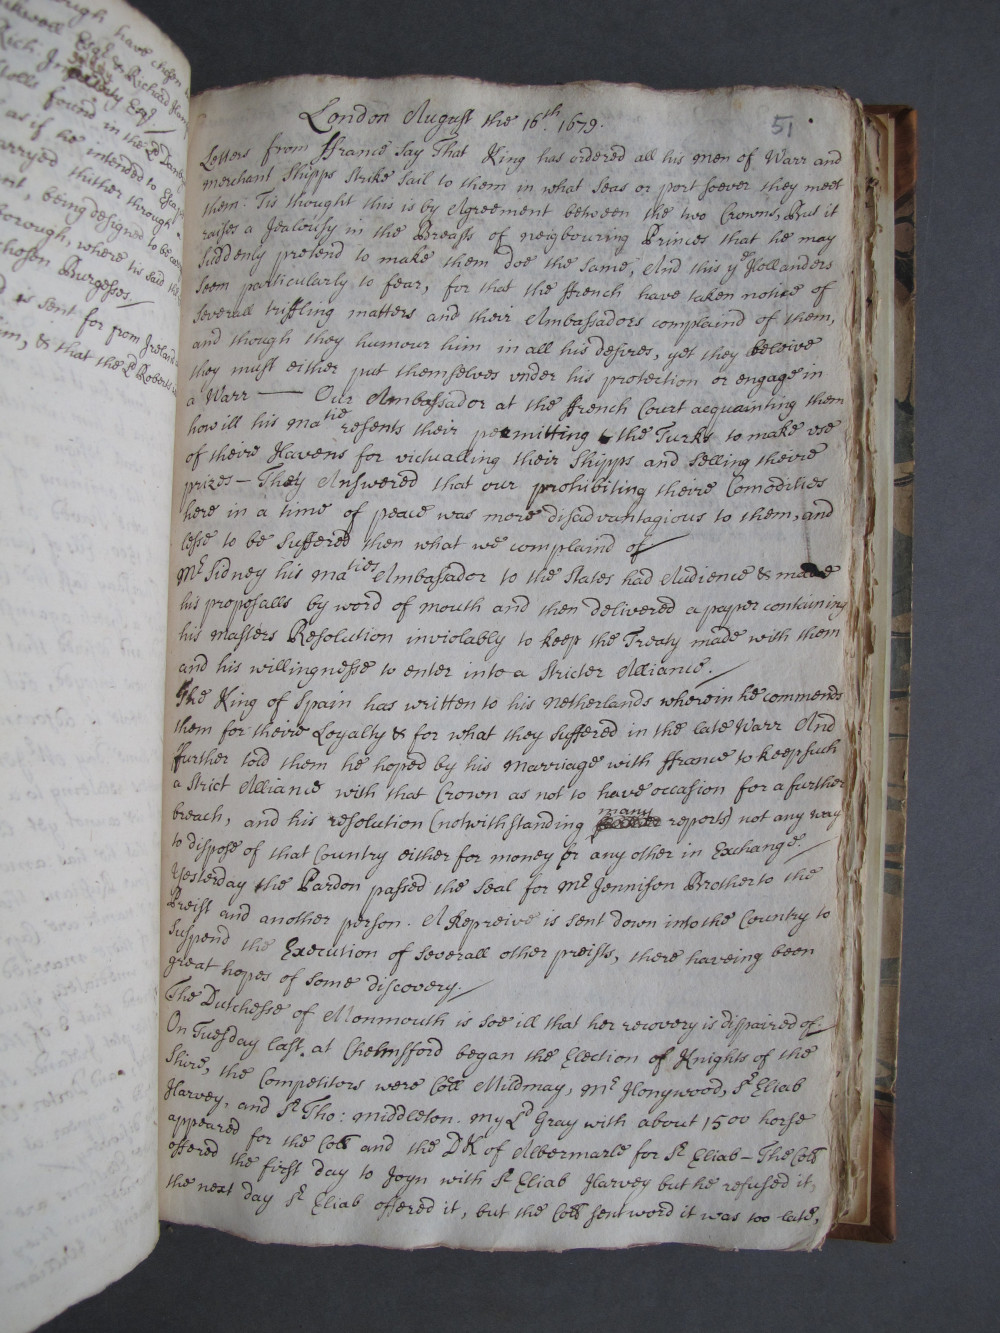 ough have chosen
ckwoll Esqr. Sr. Richard Hamp
Rich: In Esq
Rolls found in the Ld Danby
as if he intended to Escape
arryed thither through
ort, being designed to be carr
borough, where tis said
chosen Burgesses.
d is sent for from Ireland
im, & that the Ld Roberts
51
London August the 16th. 1679.
Letters from ffrance say That King has ordered all his men of Warr and
merchant Shipps strike sail to them in what seas or port soever they meet
them: Tis thought this is by Agreement between the two Crowns, But it
raises a Jealousy in the Breasts of neigbouring Princes that he may
suddenly pretend to make them doe the same, And this ye Hollanders
seem particularly to fear, for that the ffrench have taken notice of
severall triffling matters and their Ambassadors complaind of them,
and though they humour him in all his desires, yet they beleive
they must either put themselves under his protection or engage in
a Warr — Our Ambassador at the ffrench Court acquainting them
how ill his matie resents their permitting the Turks to make use
of theire Havens for victualling their Shipps and selling theire
prizes — They Answered that our prohibiting theire Comodities
here in a time of peace was more disadvantagious to them, and
lesse to be suffered then what we complaind of
Mr. Sidney his maties Ambassador to the States had Audience & made
his proposalls by word of mouth and then delivered a paper containing
his masters Resolution inviolably to keep the Treaty made with them
and his willingnesse to enter into a Stricter Alliance.
The King of Spain has written to his Netherlands wherein he commends
them for theire Loyalty & for what they suffered in the late Warr And
ffurther told them he hoped by his marriage with ffrance to keep such
a strict Alliance with that Crown as not to have occasion for a further
breach, and his resolution (notwithstanding many reports) not any way
to dispose of that Country either for money or any other in Exchange.
Yesterday the Pardon passed the seal for Mr. Jennison Brother to the
Preist and another person. A Repreive is sent down into the Country to
suspend the Execution of severall other preists, there haveing been
great hopes of some discovery.
The Dutchesse of Monmouth is soe ill that her recovery is dispaired of
On Tuesday last at Chelmsford began the Election of Knights of the
Shire, the Competitors were Coll Mildmay, Mr Honywood, Sr Eliab
Harvey, and Sr. Tho: Middleton. My Ld Gray with about 1500 horse
appeared for the Coll and the DK of Albermarle for Sr Eliab — The Coll
offered the first day to Joyn with Sr Eliab Harvey but he refused it,
the next day Sr Eliab offered it, but the Coll sent word it was too late,